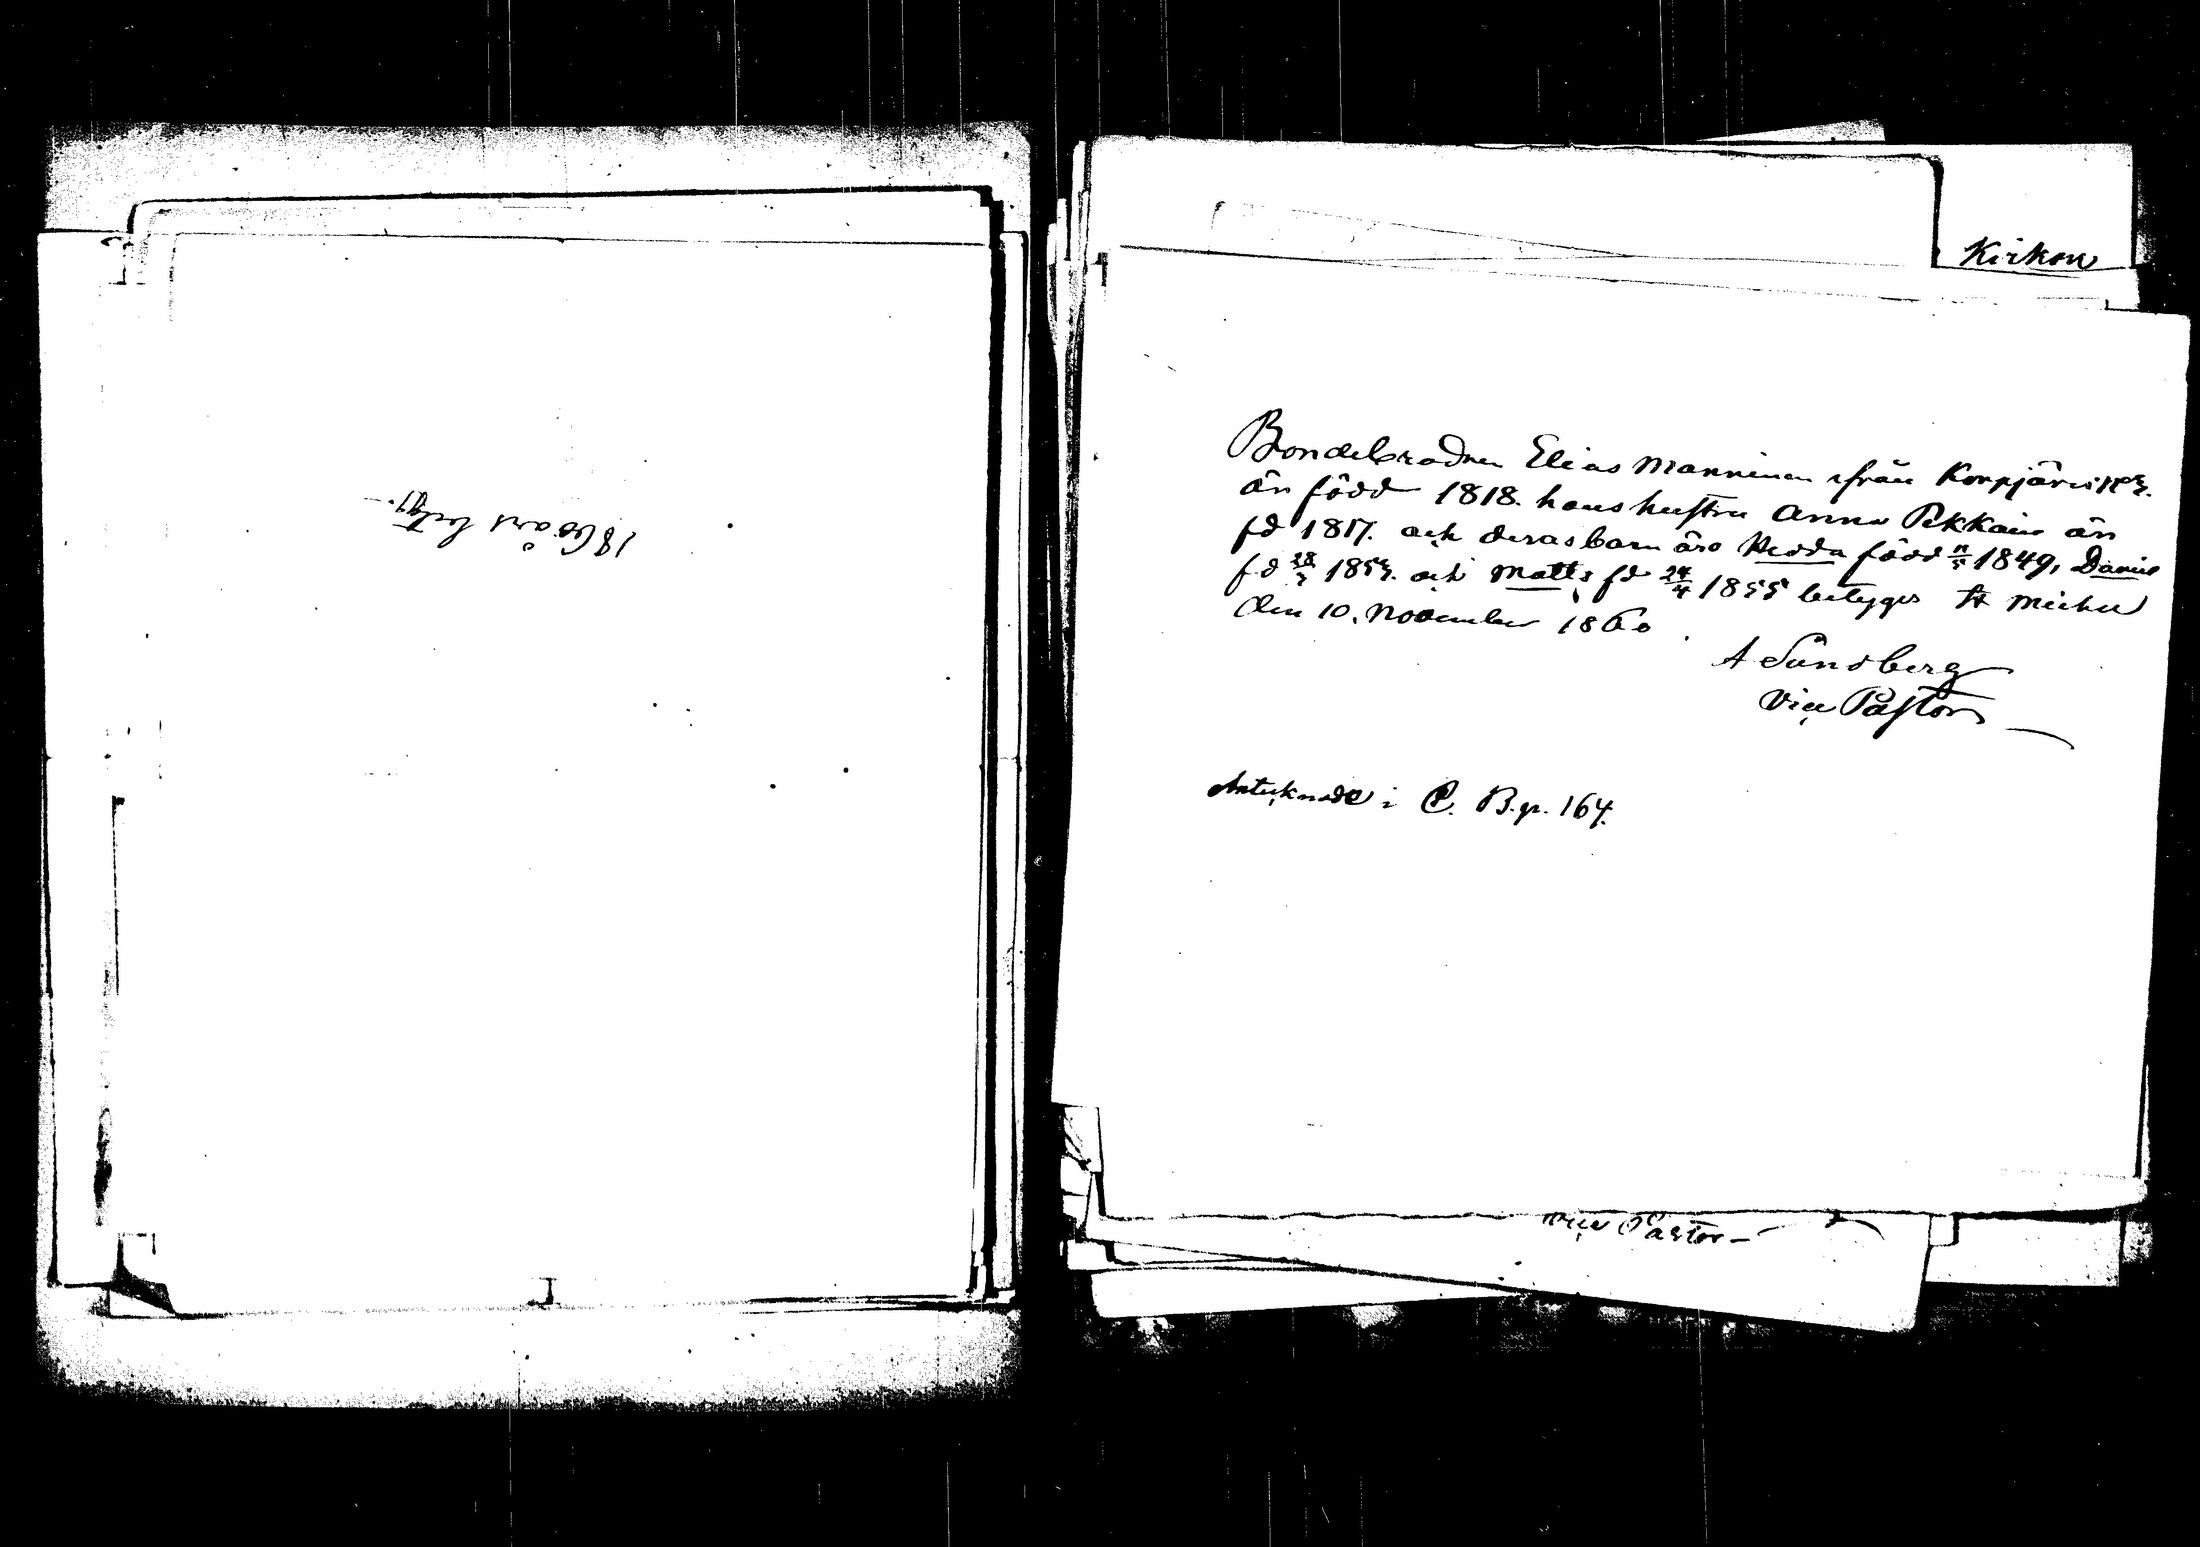 1860 års betyg.
Kirkon
Bondebrodren Elias Manninen ifrån Korpjärvi №3.
än född 1818. hans hustru Anna Pekkain än
fd 1817. och deras barn äro Hedda född 11/5 1849, Daniel
fd 28/3 1853. och Matts fd 24/4 1855 betyges St Michel
den 10. November 1860.
A Sundberg
Vice Pastor
Antecknade i C. B. p. 164.
Vice Pastor